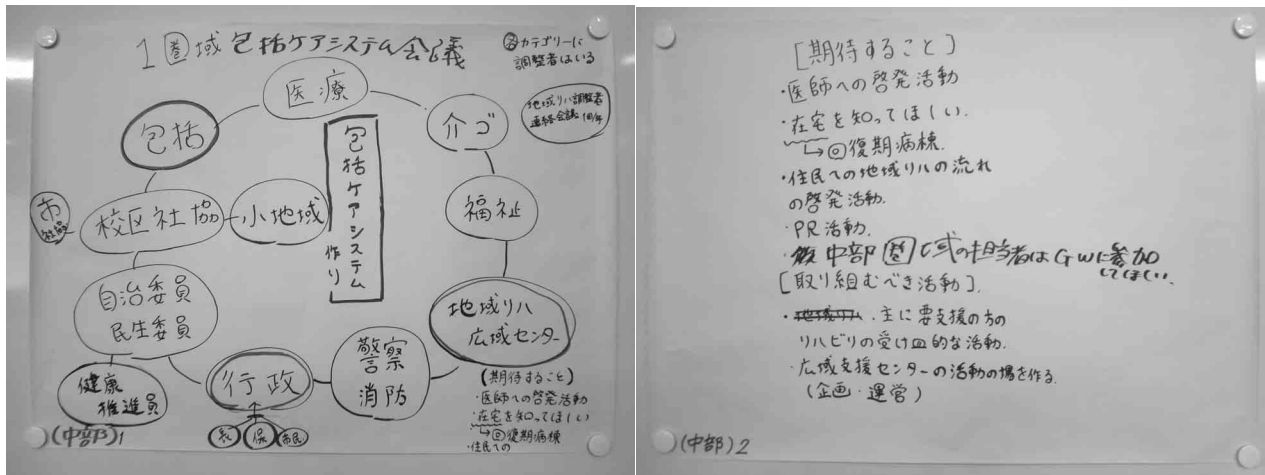 1圏域包括ケアシステム会議
各カテゴリーに
調整者はいる
医療
地域リハ調整者
連絡会議
包括
介ゴ
包括ケアシステム
作り
市
社協
校区社協
小地域
福祉
自治委員
民生委員
地域リハ
広域センター
警察
消防
行政
健康
推進員
長
保
市民
(期待すること)
・医師への啓発活動
・在宅を知ってほしい
↳回復期病棟
・住民への
(中部)1
[期待すること]
・医師への啓発活動
・在宅を知ってほしい.
↳回復期病棟.
・住民への地域リハの流れ
の啓発活動.
・PR活動.
・中部圏域の担当者はGWに参加
してほしい.
[取り組むべき活動].
・地域リハ.主に要支援の方の
リハビリの受け皿的な活動.
・広域支援センターの活動の場を作る.
(企画・運営)
(中部)2